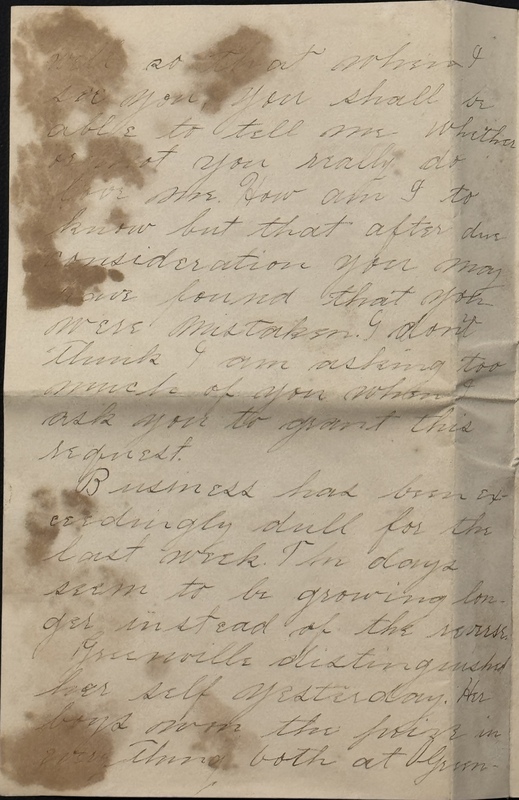 well so that when I
see you, you shall be
able to tell me whether
or not you really do
love me. How am I to
know but that after due
consideration you may
have found that you
were mistaken. I don't
think I am asking too
much of you when I
ask you to grant this
request.
Business has been ex-
ceedingly dull for the
last week. The days
seem to be growing lon-
ger instead of the reverse.
Greenville distinguished
her self yesterday. Her
boys won the prize in
every thing both at Green-